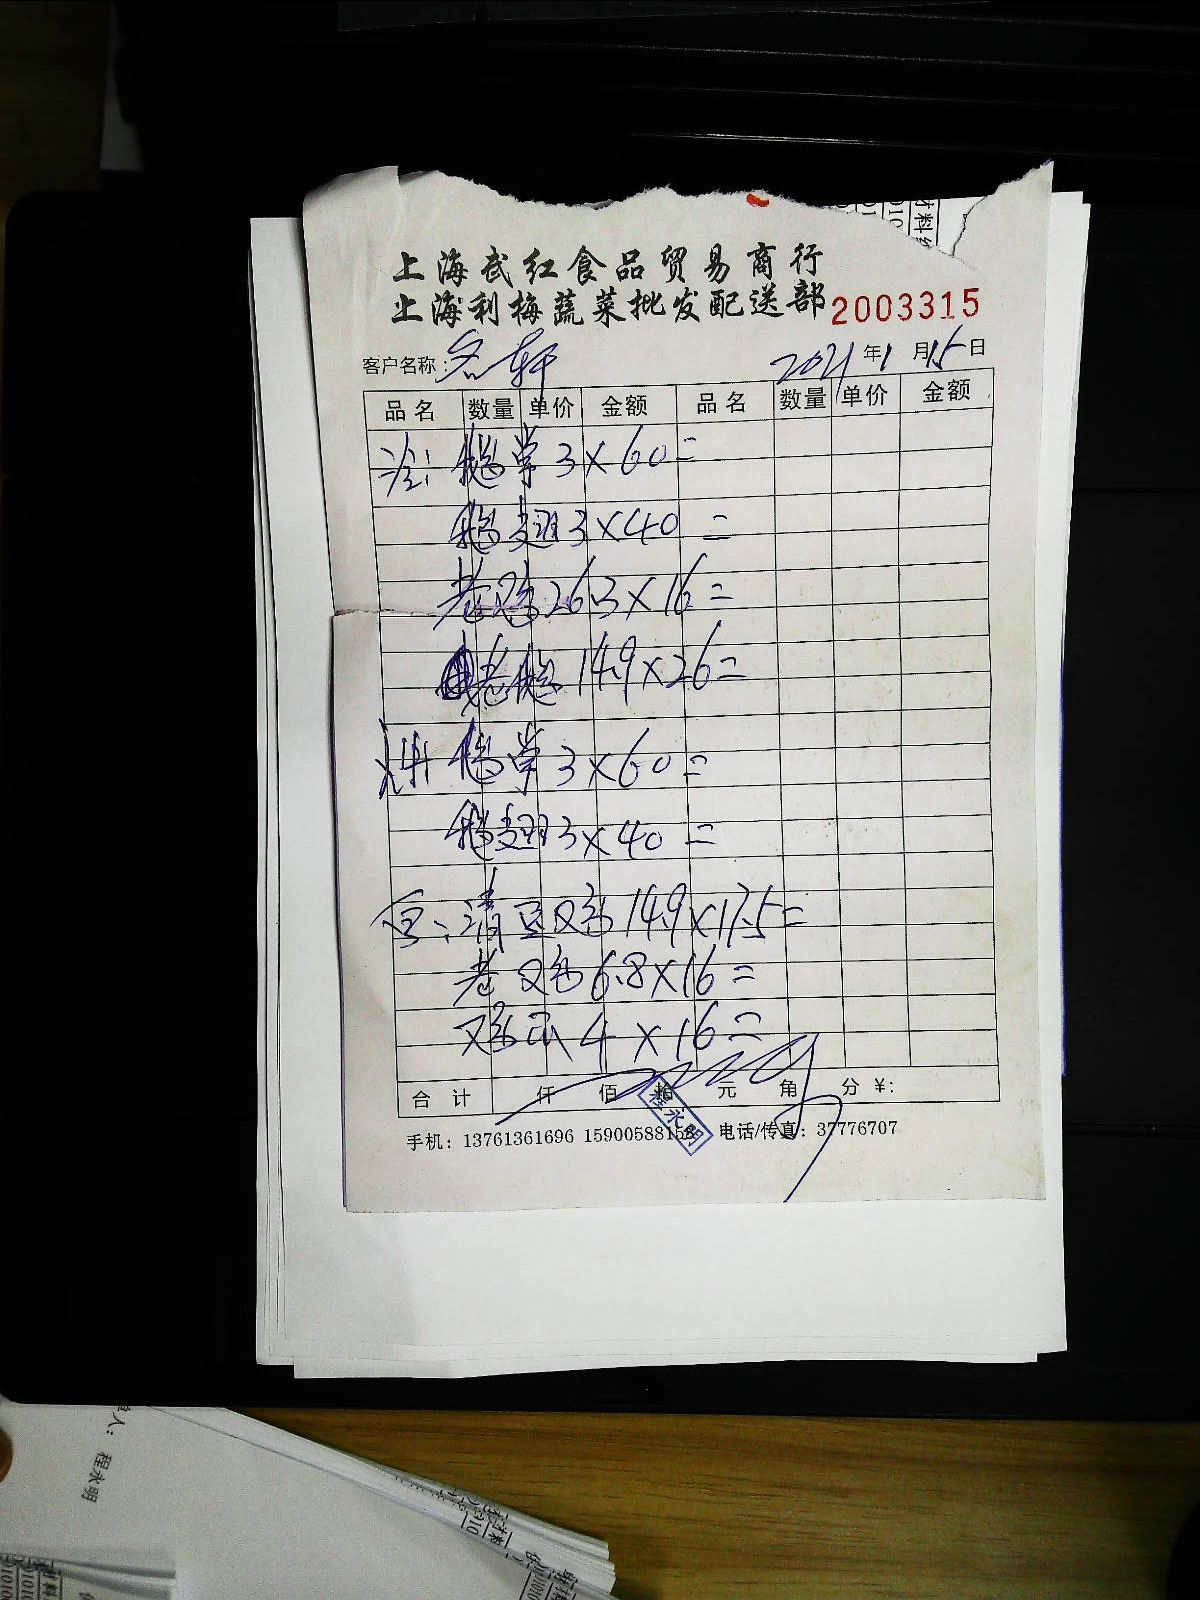 上海武红食品贸易商行
上海利梅蔬菜批发配送部 2003315
客户名称: 名轩 2021年1月15日
品名 数量 单价 金额 品名 数量 单价 金额
冷: 鹅掌 3×60=
鹅翅 3×40=
老鸡 26.3×16=
老鹅 14.9×26=
鹅掌 3×60=
鹅翅 3×40=
清豆鸡 14.9×17.5=
老鸡 6.8×16=
鸡爪 4×16=
合计 仟 佰 拾 元 角 分 ¥:
程永明
手机: 13761361696 15900588158 电话/传真: 37776707
人: 程永明